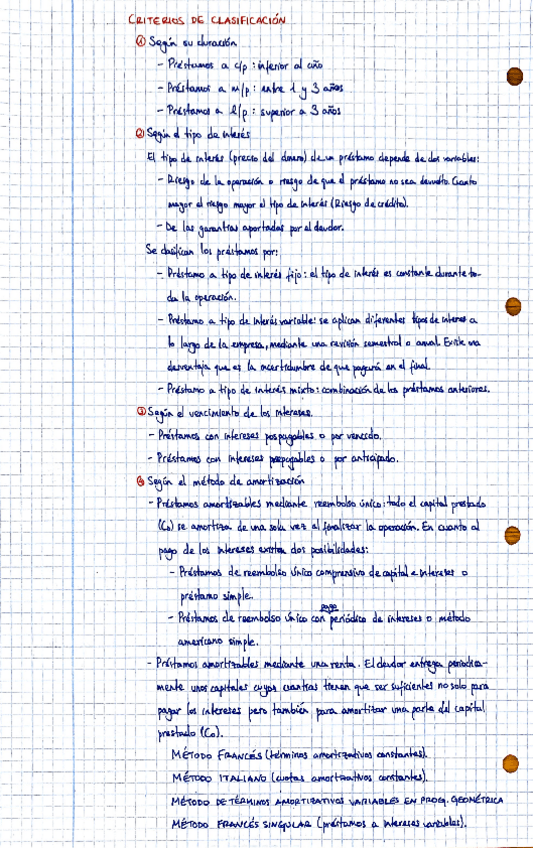 CRITERIOS DE CLASIFICACIÓN
① Según su duración
- Préstamos a c/p : inferior al año
- Préstamos a m/p : entre 1 y 3 años
- Préstamos a l/p : superior a 3 años
② Según el tipo de interés
El tipo de interés (precio del dinero) de un préstamo depende de dos variables:
- Riesgo de la operación o riesgo de que el préstamo no sea devuelto. Cuanto
mayor el riesgo mayor el tipo de interés (Riesgo de crédito).
- De las garantías aportadas por el deudor.
Se clasifican los préstamos por:
- Préstamo a tipo de interés fijo: el tipo de interés es constante durante to-
da la operación.
- Préstamo a tipo de interés variable: se aplican diferentes tipos de interés a
lo largo de la empresa, mediante una revisión semestral o anual. Existe una
desventaja que es la incertidumbre de que pagará en el final.
- Préstamo a tipo de interés mixto: combinación de los préstamos anteriores.
③ Según el vencimiento de los intereses.
- Préstamos con intereses pospagables o por vencido.
- Préstamos con intereses prepagables o por anticipado.
④ Según el método de amortización
- Préstamos amortizables mediante reembolso único: todo el capital prestado
(C₀) se amortiza de una sola vez al finalizar la operación. En cuanto al
pago de los intereses existen dos posibilidades:
- Préstamos de reembolso único comprensivo de capital e intereses o
préstamo simple.
pago
- Préstamos de reembolso único con periódico de intereses o método
americano simple.
- Préstamos amortizables mediante una renta. El deudor entrega periódica-
mente unos capitales cuyas cuantías tienen que ser suficientes no solo para
pagar los intereses pero también para amortizar una parte del capital
prestado (C₀).
MÉTODO FRANCÉS (términos amortizativos constantes).
MÉTODO ITALIANO (cuotas amortizativas constantes).
MÉTODO DE TÉRMINOS AMORTIZATIVOS VARIABLES EN PROG. GEOMÉTRICA
MÉTODO FRANCÉS SINGULAR (préstamos a intereses variables).